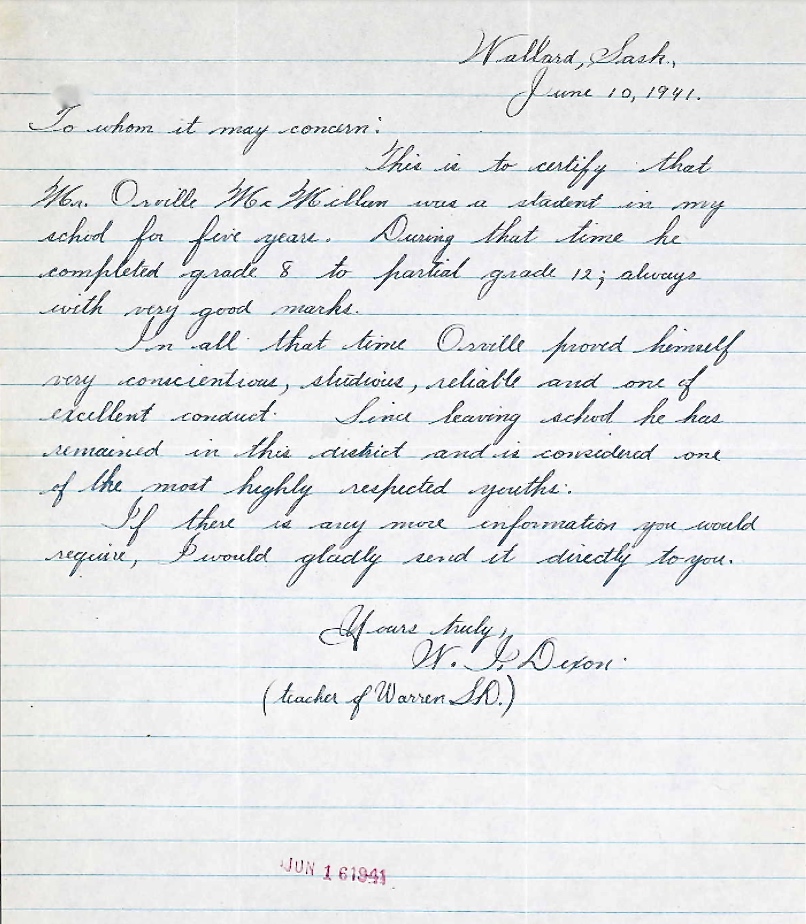 Wallard, Sask.,
June 10, 1941.
To whom it may concern:
This is to certify that
Mr. Orville McMillan was a student in my
school for five years. During that time he
completed grade 8 to partial grade 12; always
with very good marks.
In all that time Orville proved himself
very conscientious, studious, reliable and one of
excellent conduct. Since leaving school he has
remained in this district and is considered one
of the most highly respected youths.
If there is any more information you would
require, I would gladly send it directly to you.
Yours truly,
W. J. Dixon.
(teacher of Warren S.D.)
JUN 16 1941